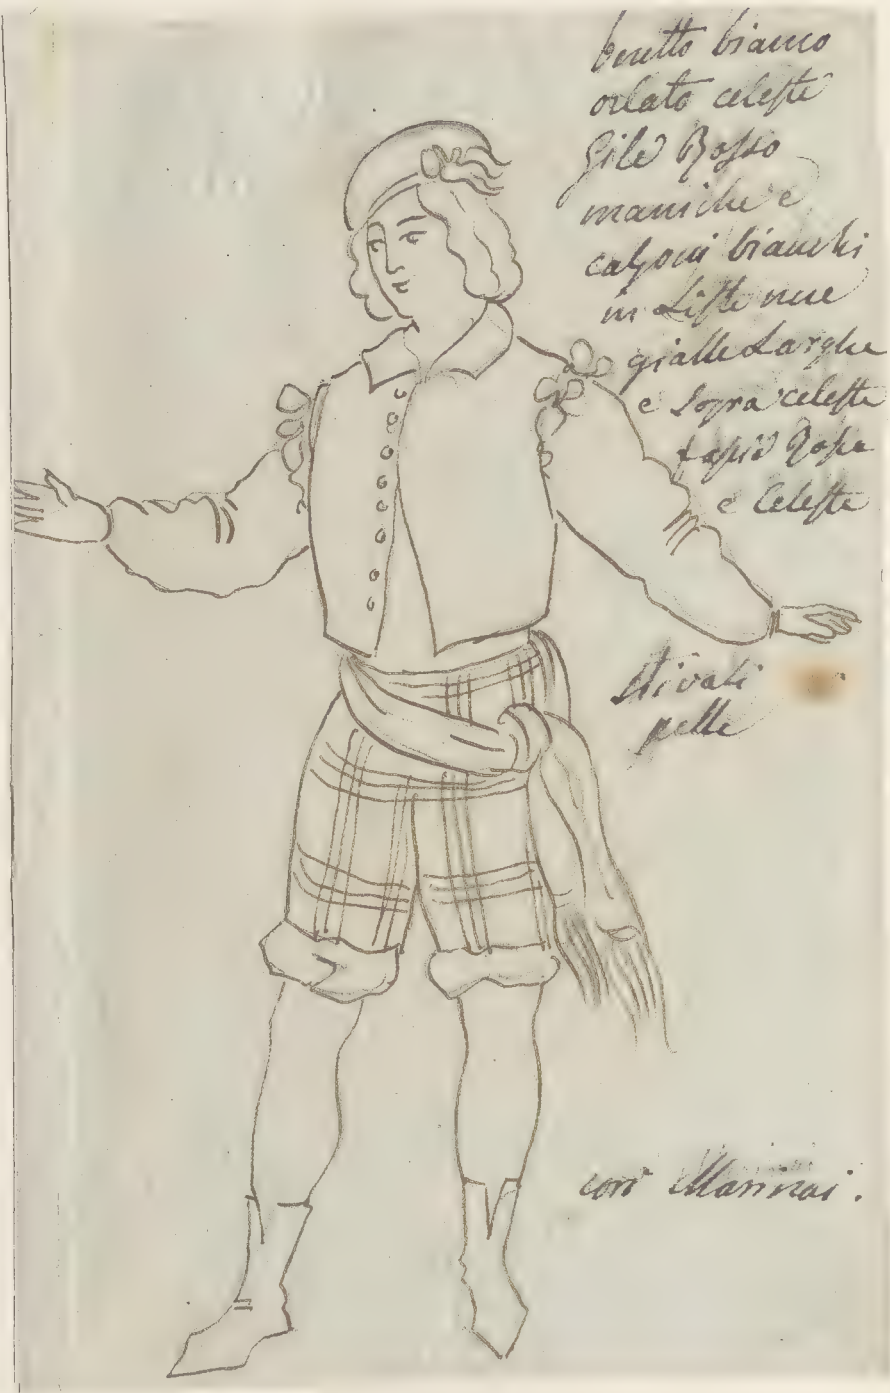 beretto bianco
orlato celeste
Gilè Rosso
maniche e
calzoni bianchi
in Liste nere
gialle Larghe
e sopra celeste
Rosse
e Celeste
Stivali
pelle
cori Marinai.